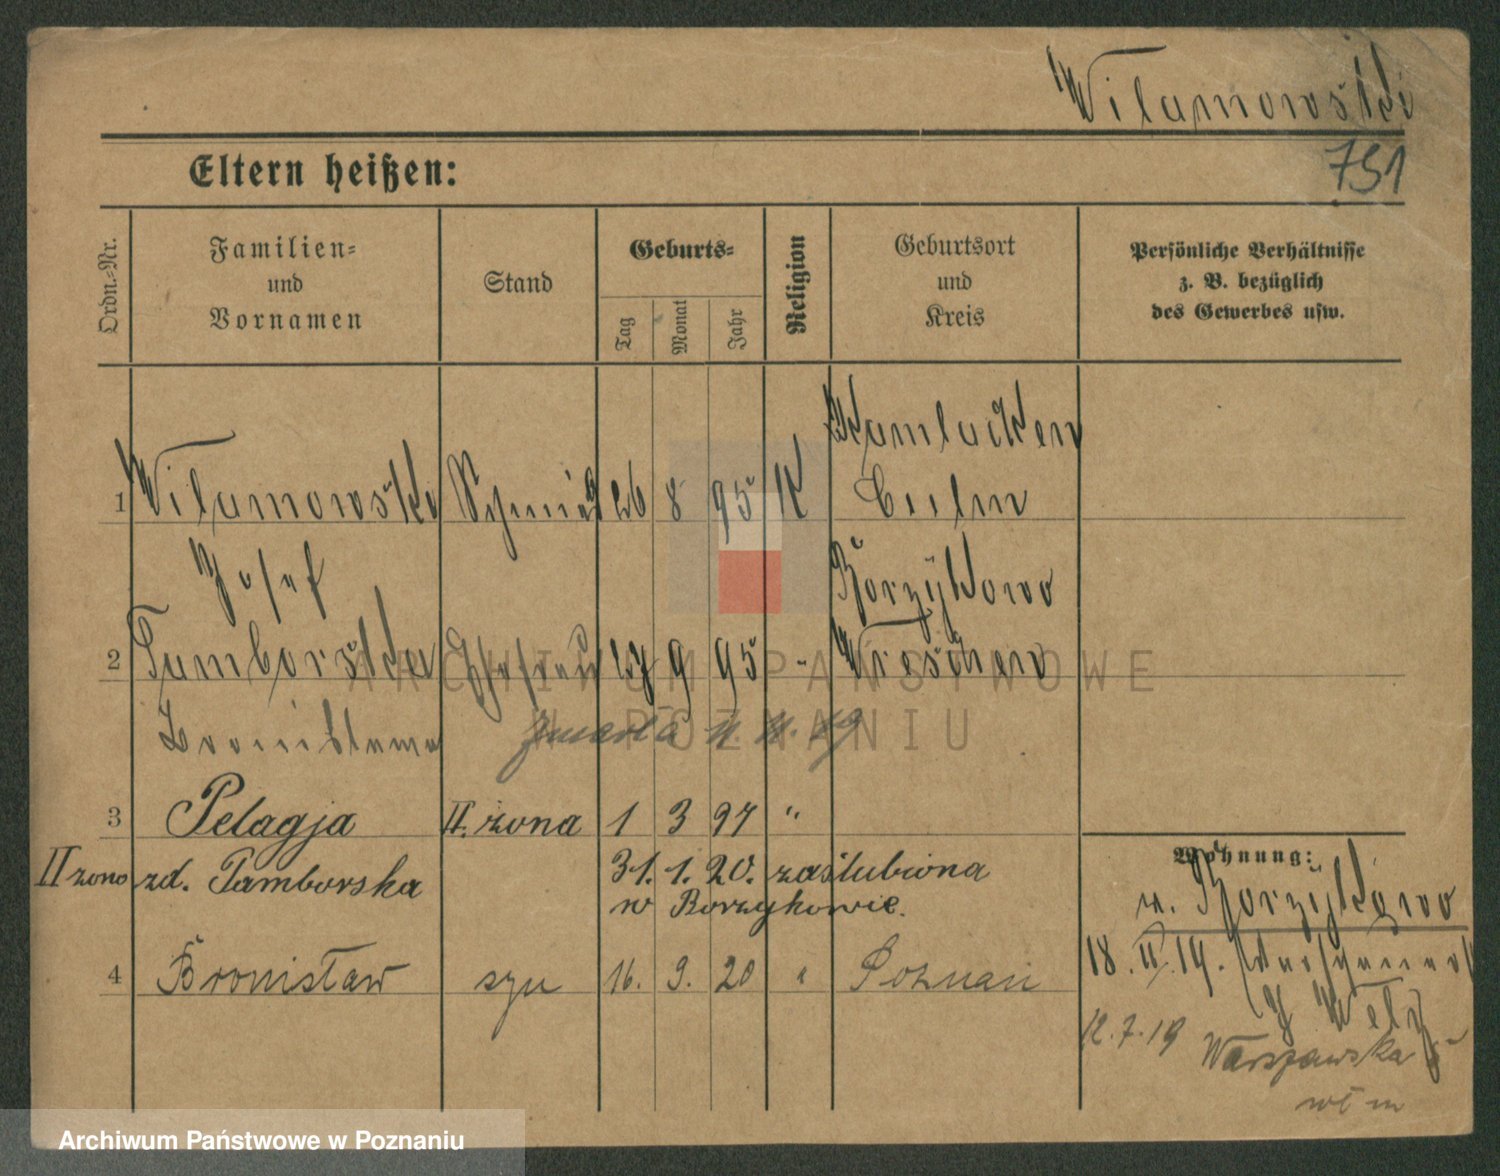 Wilamowski
751
Eltern heißen:
Ordn.-Nr.
Familien- und Vornamen
Stand
Geburts-
Tag
Monat
Jahr
Religion
Geburtsort und Kreis
Persönliche Verhältnisse z. B. bezüglich des Gewerbes usw.
Kamlacken
1 Wilamowski Schmied 26 8 95 K Culm
Josef
Borzykowo
2 Tamborska Ehefrau 27 9 95 " Wreschen
Bronislawa
zmarła
3 Pelagja II. żona 1 3 97 "
Wohnung:
II żona zd. Tamborska 31. 1. 20. zaślubiona
w Borzykowie.
v. Borzykowo
4 Bronisław syn 16. 9. 20 " Poznań
18. 19.
12.7.19 Warszawska 5
ARCHIWUM PAŃSTWOWE
W POZNANIU
Archiwum Państwowe w Poznaniu